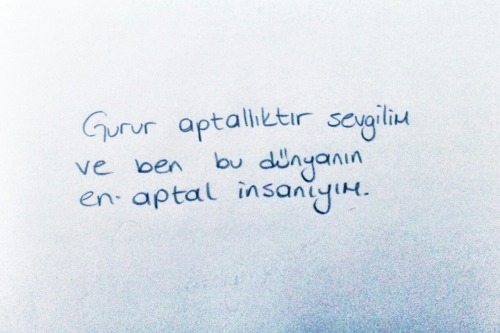 Gurur aptallıktır sevgilim
ve ben bu dünyanın
en aptal insanıyım.